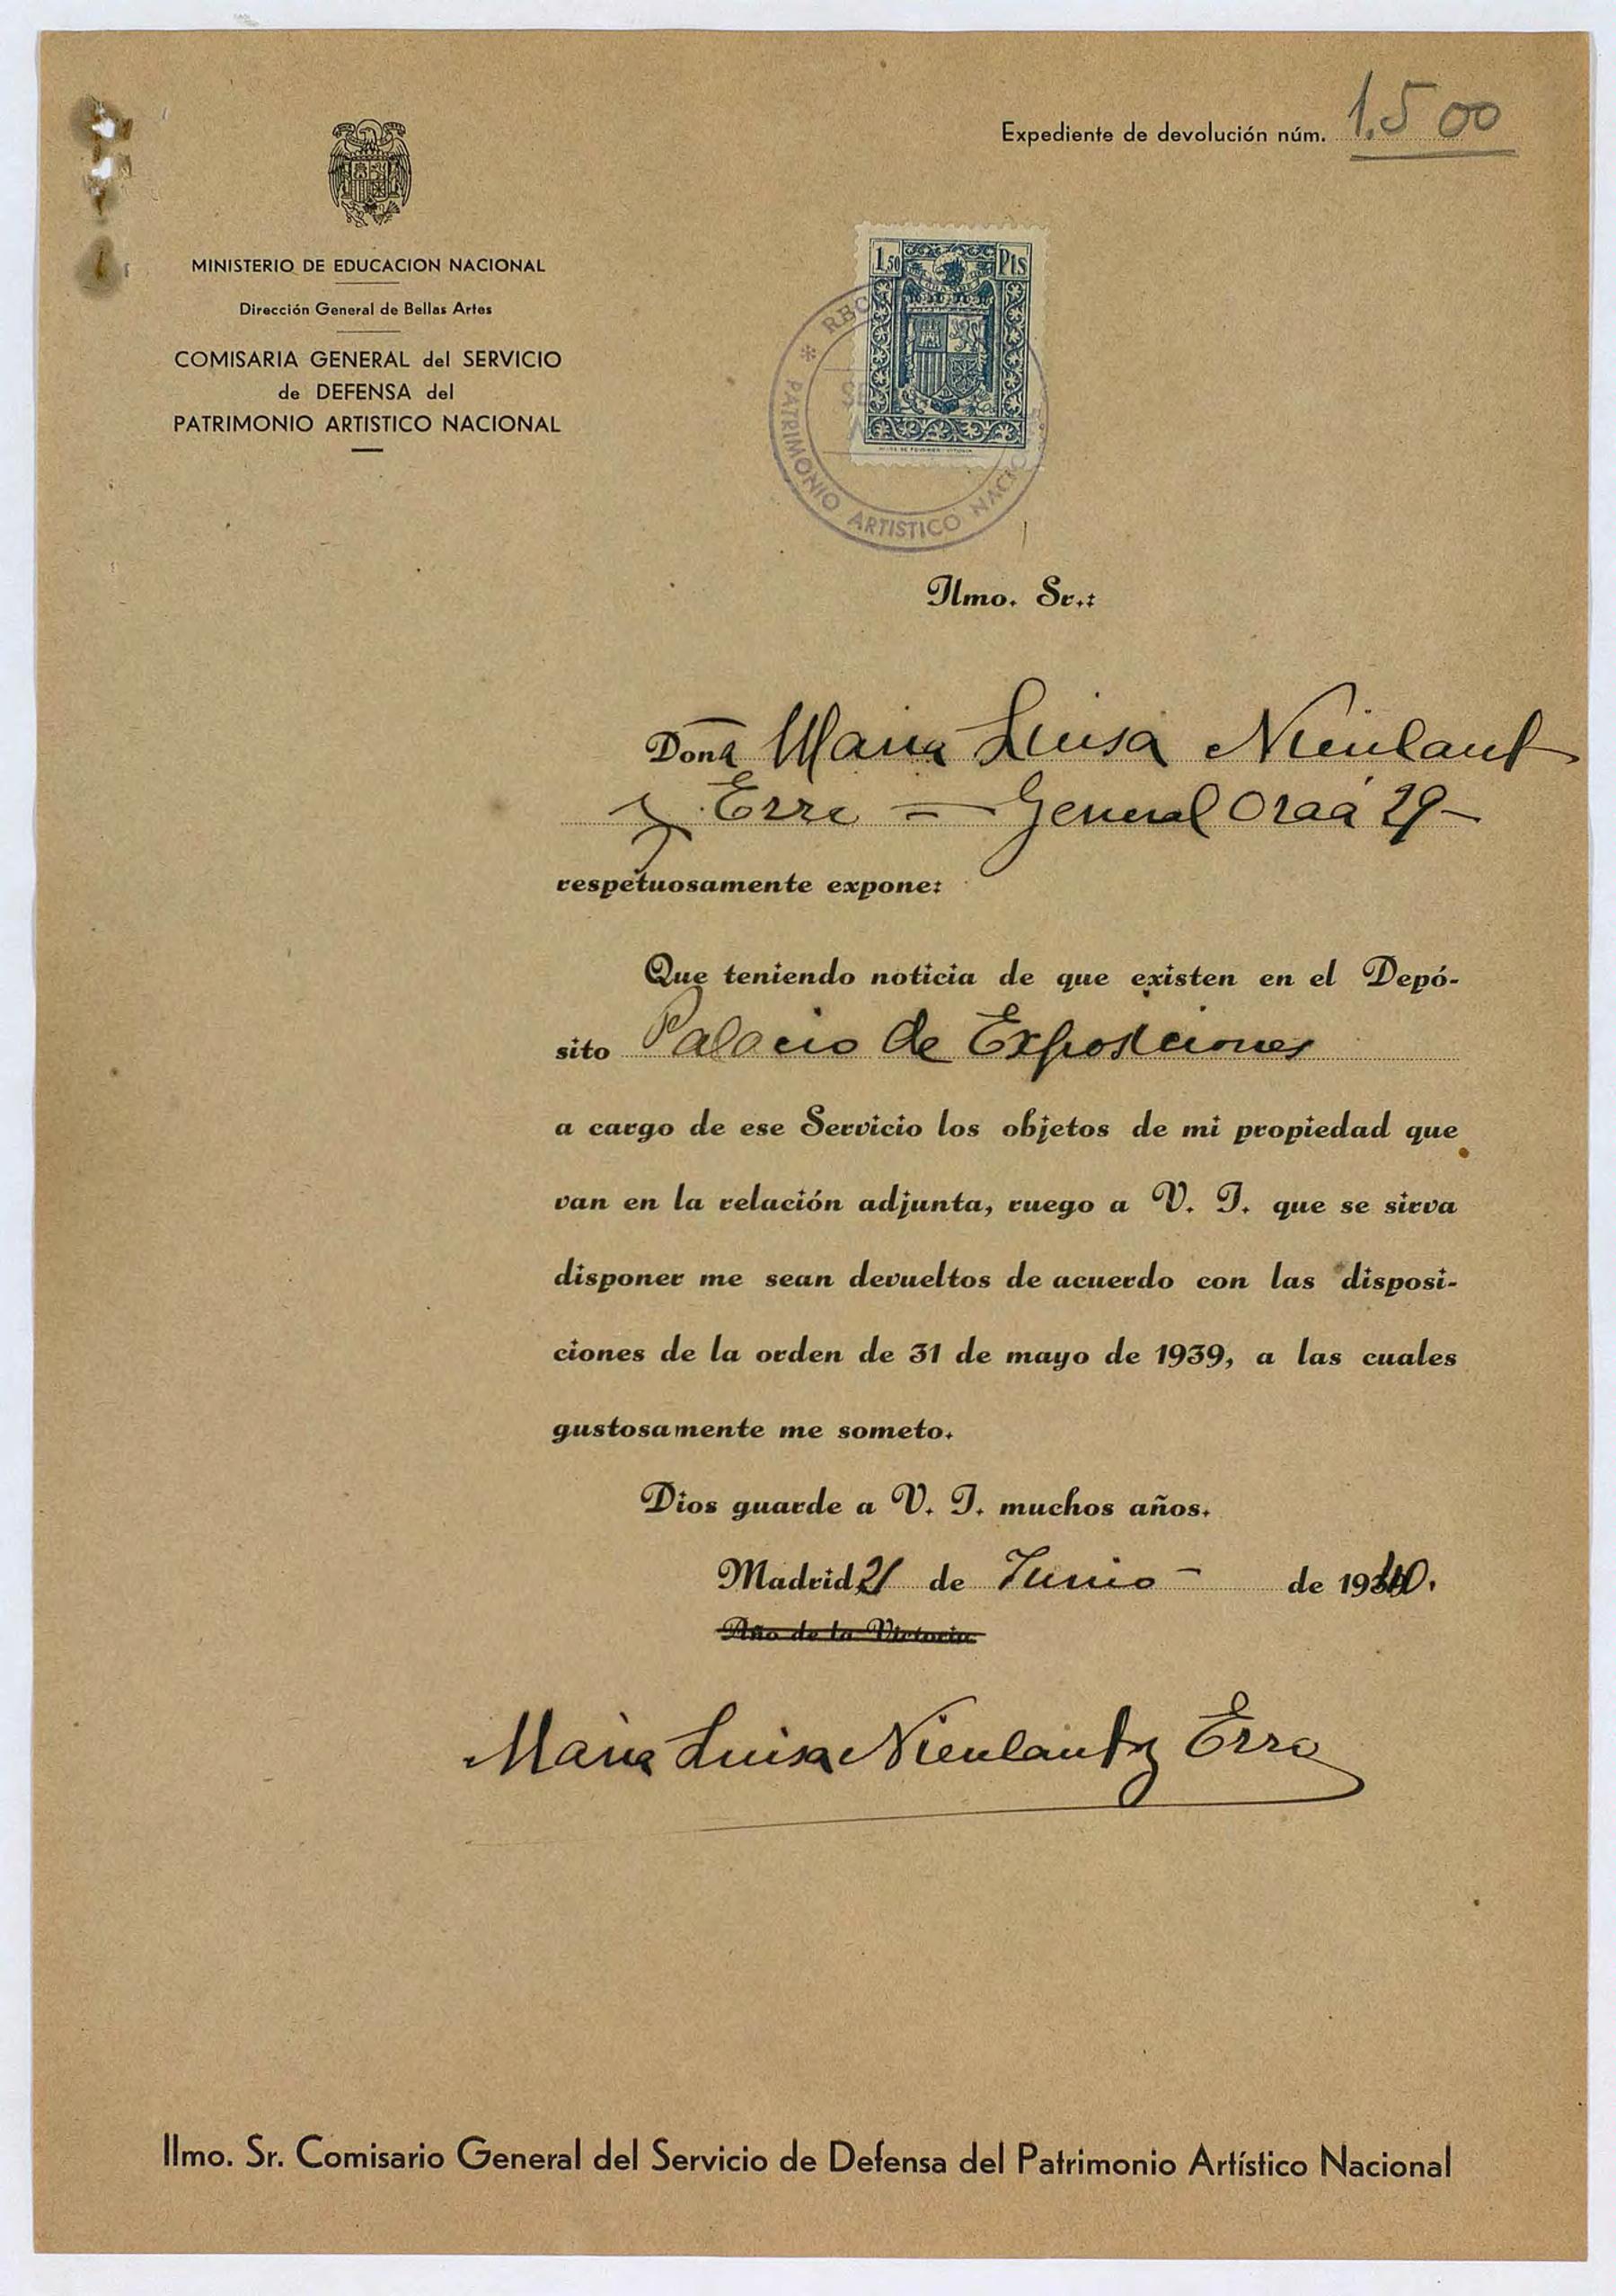 Expediente de devolución núm. 1.500
MINISTERIO DE EDUCACION NACIONAL
Dirección General de Bellas Artes
COMISARIA GENERAL del SERVICIO
de DEFENSA del
PATRIMONIO ARTISTICO NACIONAL
1,50 Pts
PATRIMONIO ARTISTICO
Ilmo. Sr.:
Doña Maria Luisa Nieulant
y Erre = General Oraá 29-
respetuosamente expone:
Que teniendo noticia de que existen en el Depó-
sito Palacio de Exposiciones
a cargo de ese Servicio los objetos de mi propiedad que
van en la relación adjunta, ruego a V. I. que se sirva
disponer me sean devueltos de acuerdo con las disposi-
ciones de la orden de 31 de mayo de 1939, a las cuales
gustosamente me someto.
Dios guarde a V. I. muchos años.
Madrid 21 de Junio - de 1940.
Año de la Victoria
Maria Luisa Nieulant y Erre
Ilmo. Sr. Comisario General del Servicio de Defensa del Patrimonio Artístico Nacional